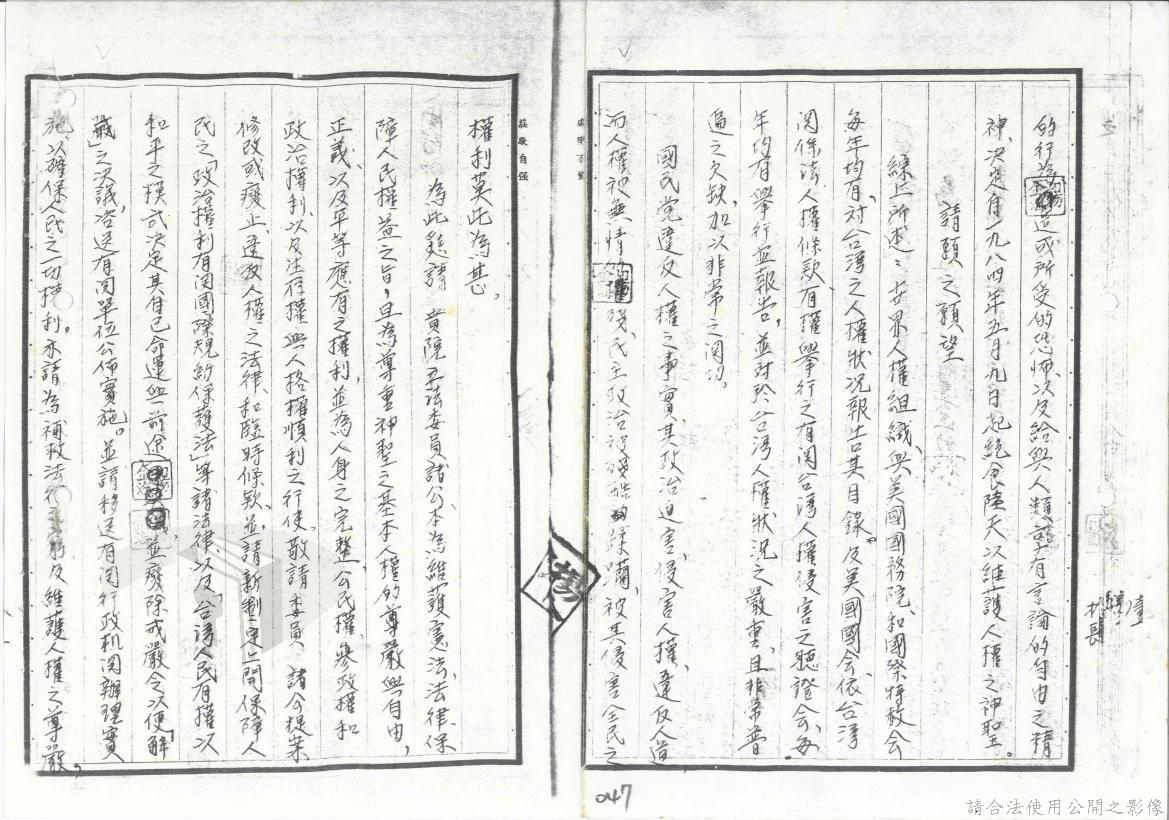 的行為造或所受的恐怖、以及給與人類享有言論的自由之精
神、決定自一九八四年五月九日起絕食陸天以維護人權之神聖。
請願之願望
綜上所述：世界人權組織與美國國務院、和國際特赦會
每年均有、對台湾之人權狀況報告其目錄。及美國國会依、台湾
関係法人權條款、有權舉行之有関台湾人權侵害之聽證会、每
年均有舉行並報告，並対於台湾人權狀況之嚴重、且非常普
遍之欠缺，加以非常之関切。
國民党違反人權之事實、其政治迫害、侵害人權、違反人道、
而人權被無情的摧殘、民主政治被殘酷的蹂躪，被其侵害全民之
權利莫此為甚，
為此懇請 貴院立法委員諸公、本為維護憲法、法律、保
障人民權益之旨，且為尊重神聖之基本人權的尊嚴與自由，
正義、以及平等應有之權利，並為人身之完整、公民權、參政權和
政治權利、以及生存權與人格權順利之行使。敬請 委員、諸公提案、
修改或廢止、違反人權之法律、和臨時條款，並請新制定上開保障人
民之「政治權利有関國際規約保護法」等諸法律、以及「台湾人民有權以
和平之模式決定其自己命運與前途」，並廢除戒嚴令以便「解
嚴」之決議，咨送有関單位公佈實施。並請移送有関行政机関辦理實
施以確保人民之一切権利。亦請為補救法律及維護人權之尊嚴，
莊敬自强
壹
047
請合法使用公開之影像